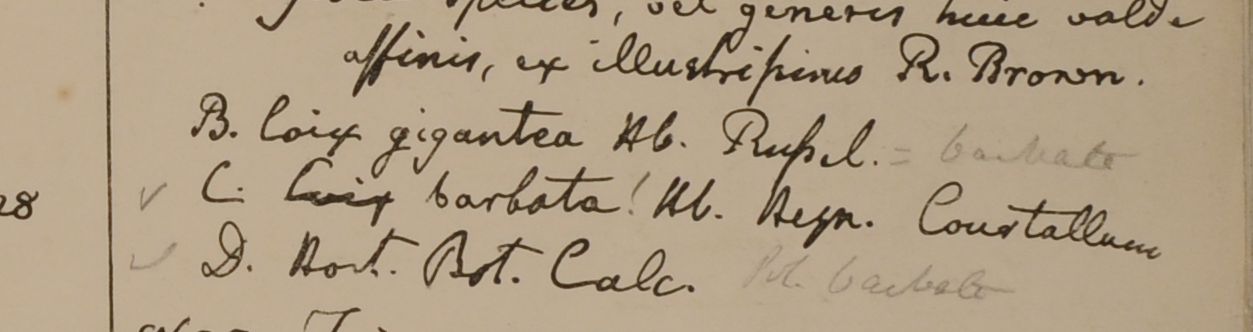 species, vel generis huic valde
affinis, ex illustrissimo R. Brown.
B. Coix gigantea Hb. Russel. = barbata
C. Coix barbata! Hb. Heyn. Courtallum
28
D. Hort. Bot. Calc. barbata